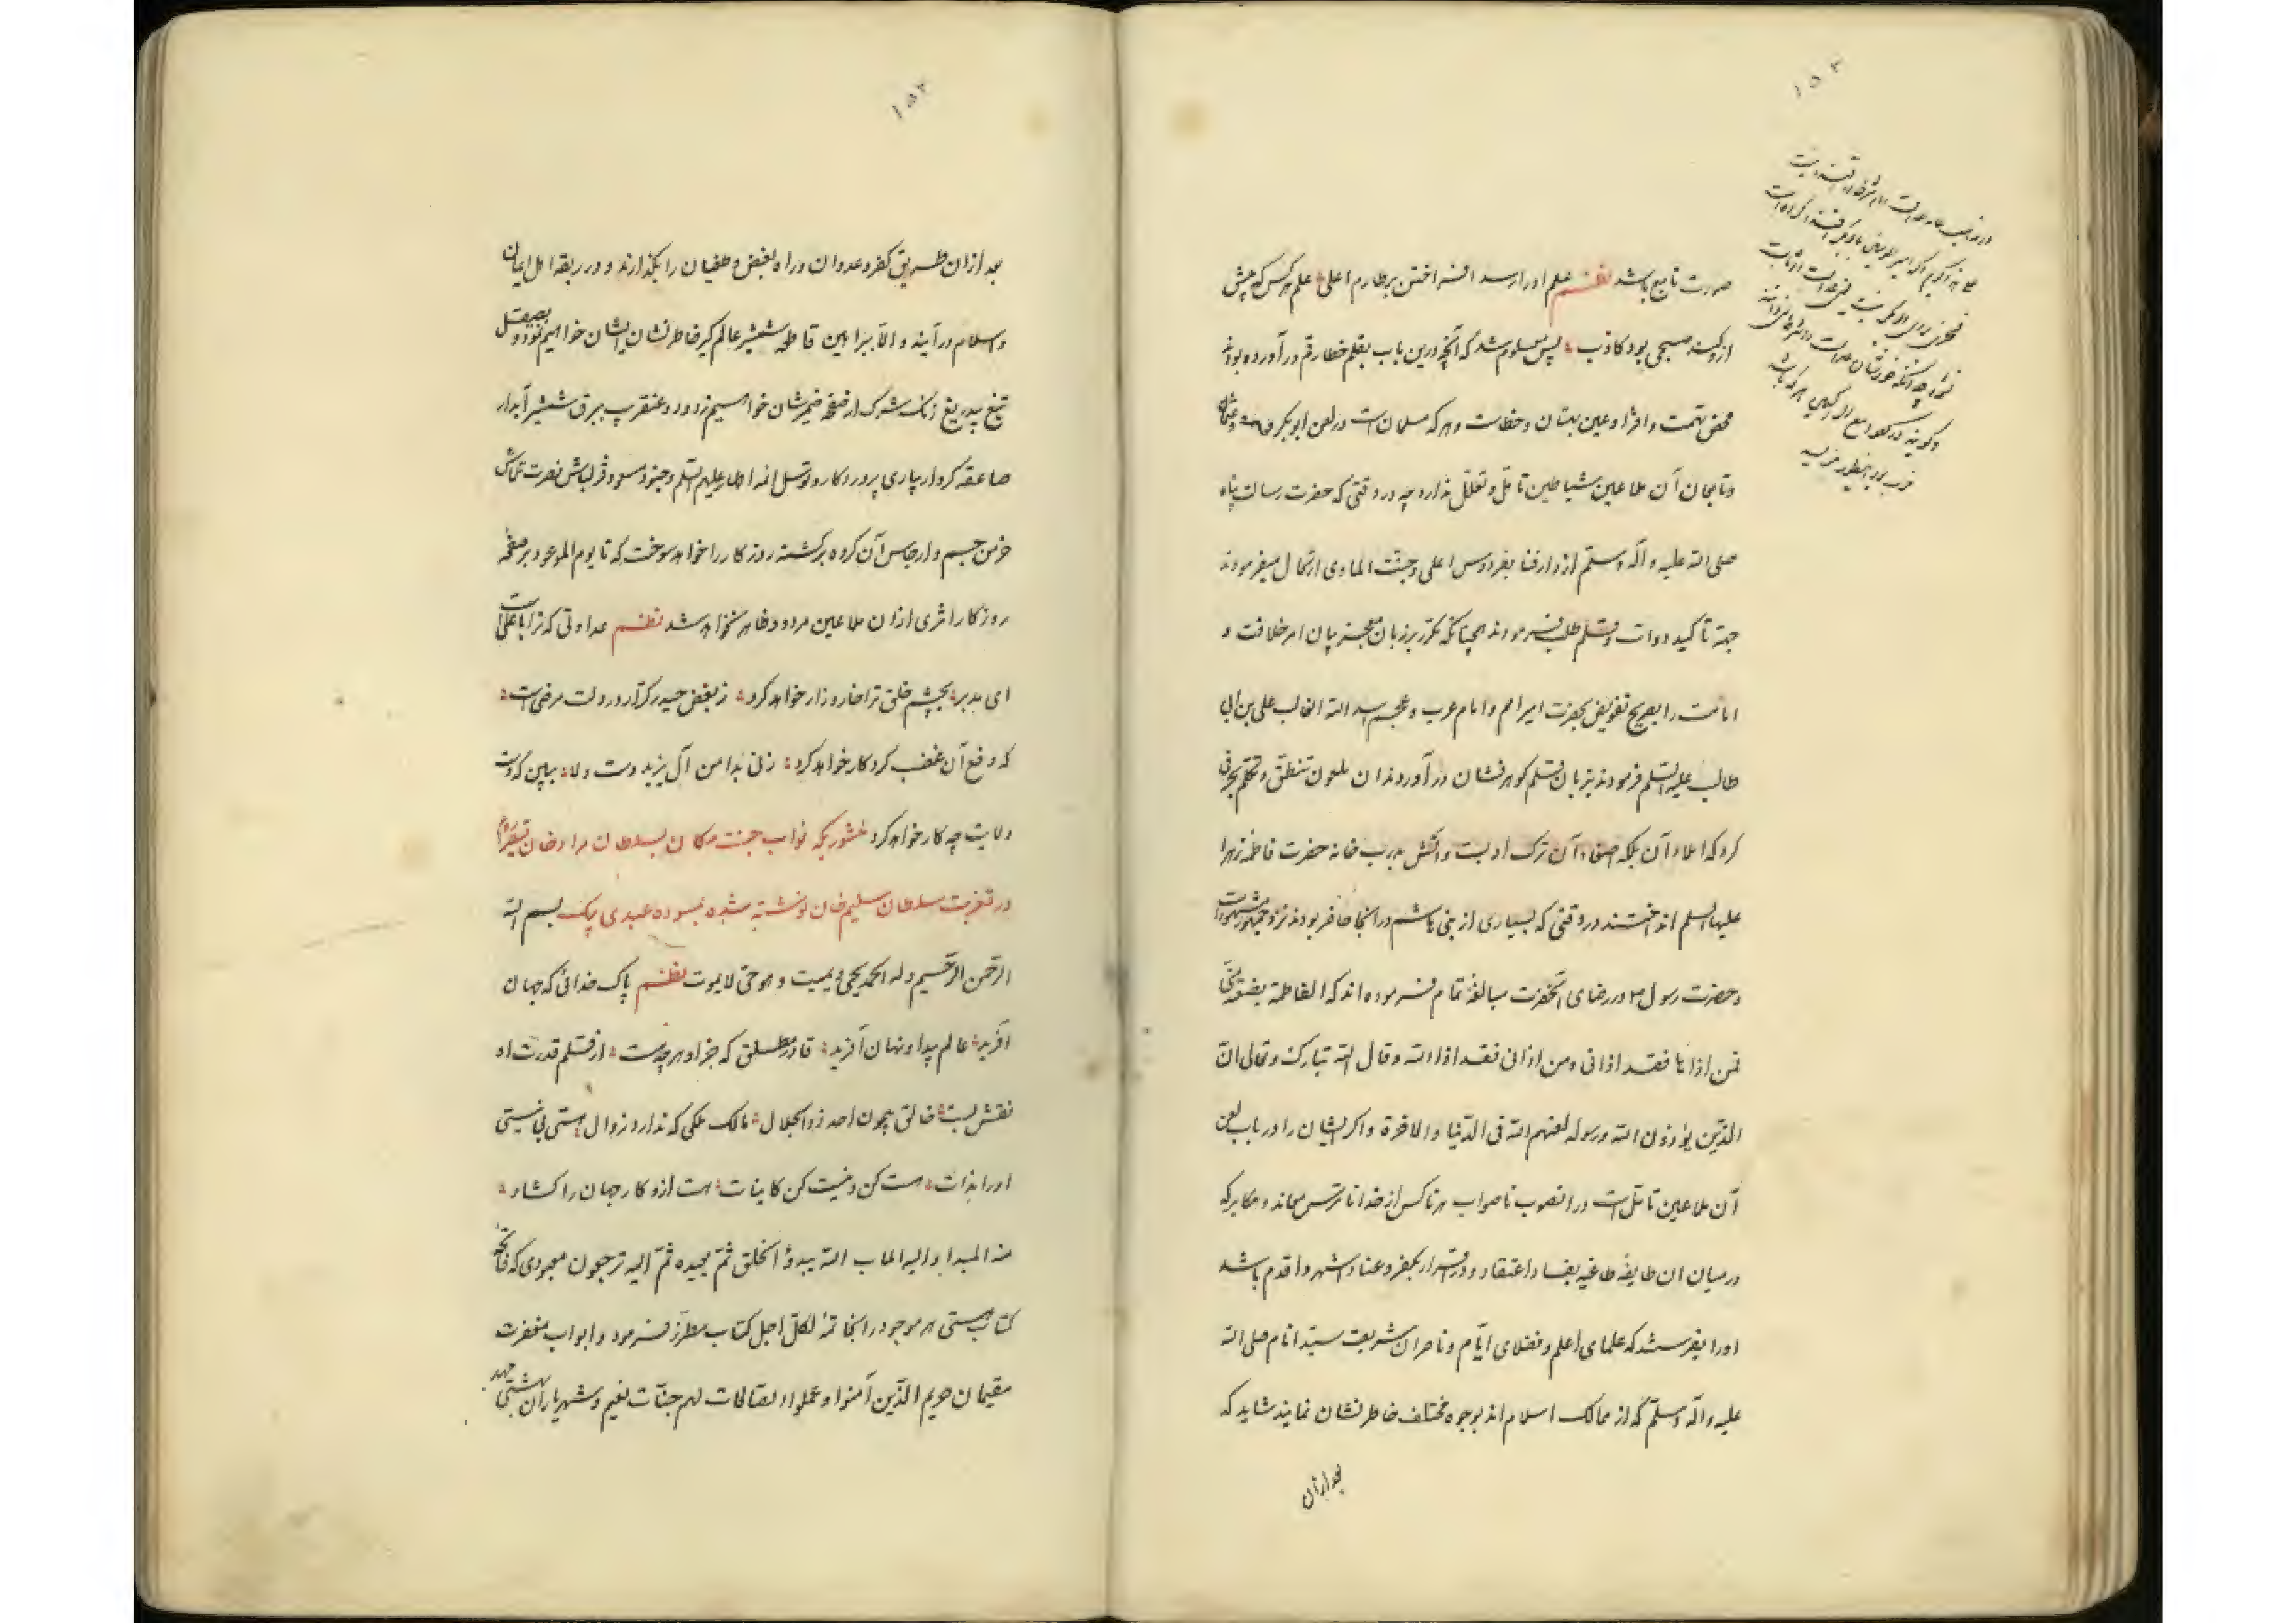 ۱۵۲
صورت تابع باشد نظم علم او را رسد افراختن بر طارم اعلی علم هر کس که پیش
ازو کند صبحی بود کاذب پس معلوم شد که آنچه درین باب بقلم خطا رقم در آورده بودند
محض تهمت و افترا و عین بهتان و خطاست و هر که مسلمان است در لعن ابوبکر و عمر و عثمان
و تابعان آن ملاعین شیاطین تامل و تعلل ندارد چه در وقتی که حضرت رسالت پناه
صلی الله علیه و آله و سلم از دار فنا بفردوس اعلی و جنت الماوی ارتحال میفرمودند
جهة تاکید دوات و قلم طلب فرمودند همچنانکه مکرر بزبان معجز بیان امر خلافت و
امامت را بصریح تفویض بحضرت امیر امم و امام عرب و عجم اسد الله الغالب علی بن ابی
طالب علیه السلم فرمودند بزبان قلم گوهرفشان در آورند ان ملعون تنطق و تکلم بحرفی
کرد که املاء آن بلکه اصغاء آن ترک ادبست و آتش بدرب خانه حضرت فاطمه زهرا
علیها السلم انداختند در وقتی که بسیاری از بنی هاشم در انجا حاضر بودند نزد جمهور مشهورست
و حضرت رسول ص در رضای آنحضرت مبالغه تمام فرموده اند که الفاطمة بضعة منی
فمن اذاها فقد اذانی و من اذانی فقد اذا الله و قال الله تبارک و تعالی ان
الذین یؤذون الله و رسوله لعنهم الله فی الدنیا و الاخرة و اگر ایشان را در باب لعن
آن ملاعین تامل است در انصوب ناصواب هر ناکس از خدا ناترس معاند و مکابر که
در میان ان طایفه طاغیه بفساد اعتقاد و در اسرار بکفر و عناد اشهر و اقدم باشد
او را بفرستند که علمای اعلم و فضلای ایام و ناصران شریعت سید انام صلی الله
علیه و آله و سلم که از ممالک اسلام اند بوجوه مختلف خاطرنشان نمایند شاید که
بعد از آن
۱۵۳
بعد از ان طریق کفر و عدوان و راه بغض و طغیان را بگذارند و در ربقه اهل ایمان
و اسلام در آیند و الا ببراهین قاطعه شمشیر عالم گیر خاطرنشان ایشان خواهیم نمود و بصیقل
تیغ بیدریغ زنگ شرک از صفحه ضمیرشان خواهیم زدود و عنقریب ببرق شمشیر آبدار
صاعقه کردار بیاری پروردگار و توسل ائمه اطهار علیهم السلم و جنود مسعود قزلباش نصرت تلاش
خرمن جسم و ارجاس آن گروه برگشته روزگار را خواهد سوخت که تا یوم الموعود بر صفحه
روزگار اثری از ان ملاعین مردود ظاهر نخواهد شد نظم عداوتی که ترا با علی است
ای مدبر بچشم خلق ترا خار و زار خواهد کرد ز بغض حیدر کرار در دلت مرضیست
که دفع آن غضب کردگار خواهد کرد زنی بدامن آل یزید دست ولا ببین که دست
ولایت چه کار خواهد کرد منشوریکه نواب جنت مکان بسلطان مراد خان قیصر روم
در تعزیت سلطان سلیم خان نوشته شده بمسوده عبدی بیک بسم الله
الرحمن الرحیم و له الحمد یحیی و یمیت و هو حی لا یموت نظم پاک خدائی که جهان
آفرید عالم پیدا و نهان آفرید قادر مطلق که جز او هر چه هست از قلم قدرت او
نقش بست خالق بیچون احد ذو الجلال مالک ملکی که ندارد زوال هستی بی نیستی
او را بذات هست کن و نیست کن کاینات هست ازو کار جهان را گشاد
منه المبدا و الیه الماب الله یبدؤ الخلق ثم یعیده ثم الیه ترجعون معبودی که فاتحه
کتاب هستی هر موجود را بخاتمه لکل اجل کتاب مطرز فرمود و ابواب مغفرت
مقیمان حریم الذین آمنوا و عملوا الصالحات لهم جنات نعیم و شهریاران بهشتی مهد